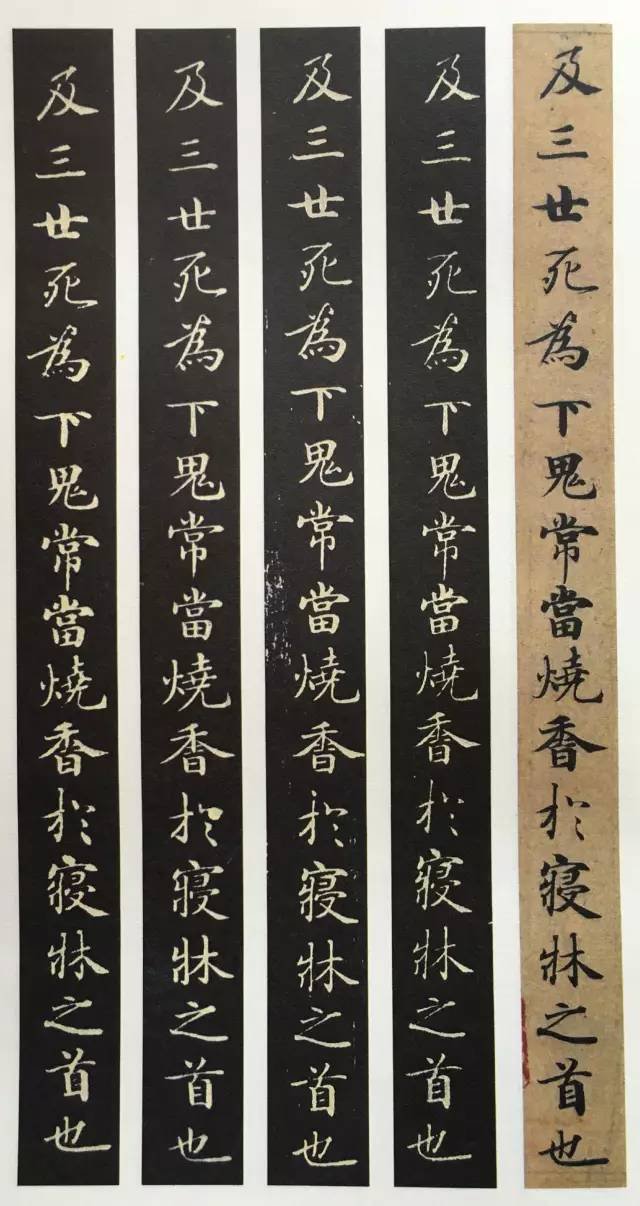 及三世死為下鬼常當燒香於寢牀之首也
及三世死為下鬼常當燒香於寢牀之首也
及三世死為下鬼常當燒香於寢牀之首也
及三世死為下鬼常當燒香於寢牀之首也
及三世死為下鬼常當燒香於寢牀之首也